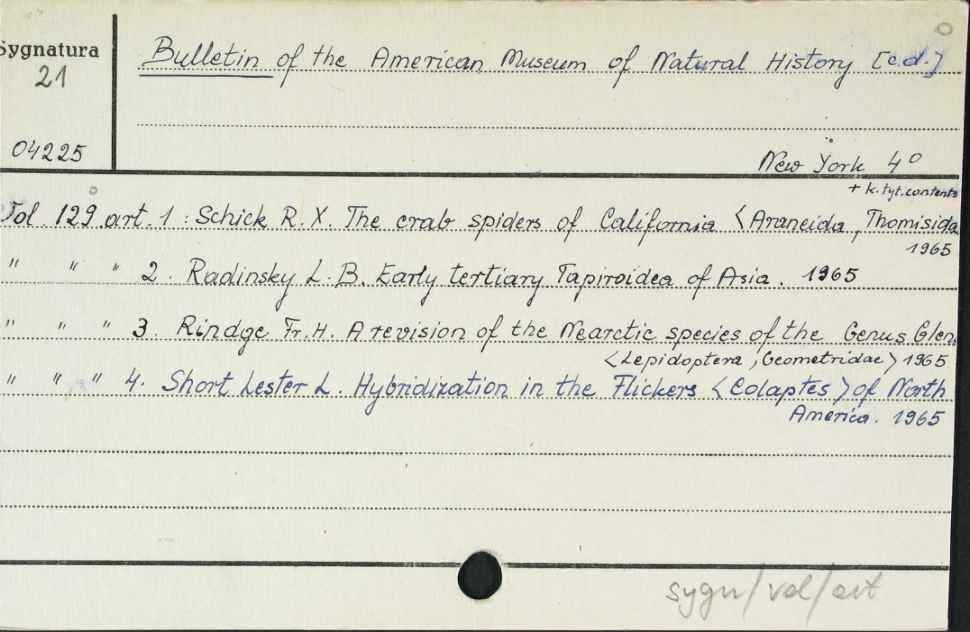 Sygnatura
21
04225
Bulletin of the American Museum of Natural History [c.d.]
New York 4°
+ k. tyt. contents
Vol. 129 art. 1 : Schick R. X. The crab spiders of California <Araneida, Thomisida
1965
" " " 2. Radinsky L. B. Early tertiary Tapiroidea of Asia. 1965
" " " 3. Rindge Fr. H. A revision of the Nearctic species of the Genus Glen.
<Lepidoptera, Geometridae> 1965
" " " 4. Short Lester L. Hybridization in the Flickers <Colaptes> of North
America. 1965
sygn/vol/art